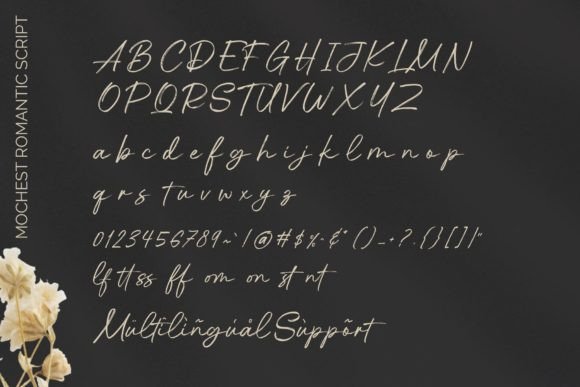 MOCHEST ROMANTIC SCRIPT
A B C D E F G H I J K L M N
O P Q R S T U V W X Y Z
a b c d e f g h i j k l m n o p
q r s t u v w x y z
0 1 2 3 4 5 6 7 8 9 ~ ` ! @ # $ % ^ & * ( ) _ + ? . { } [ ] | "
lf tt ss ff om on st nt
Mültîlìñgúål Sùppõrt